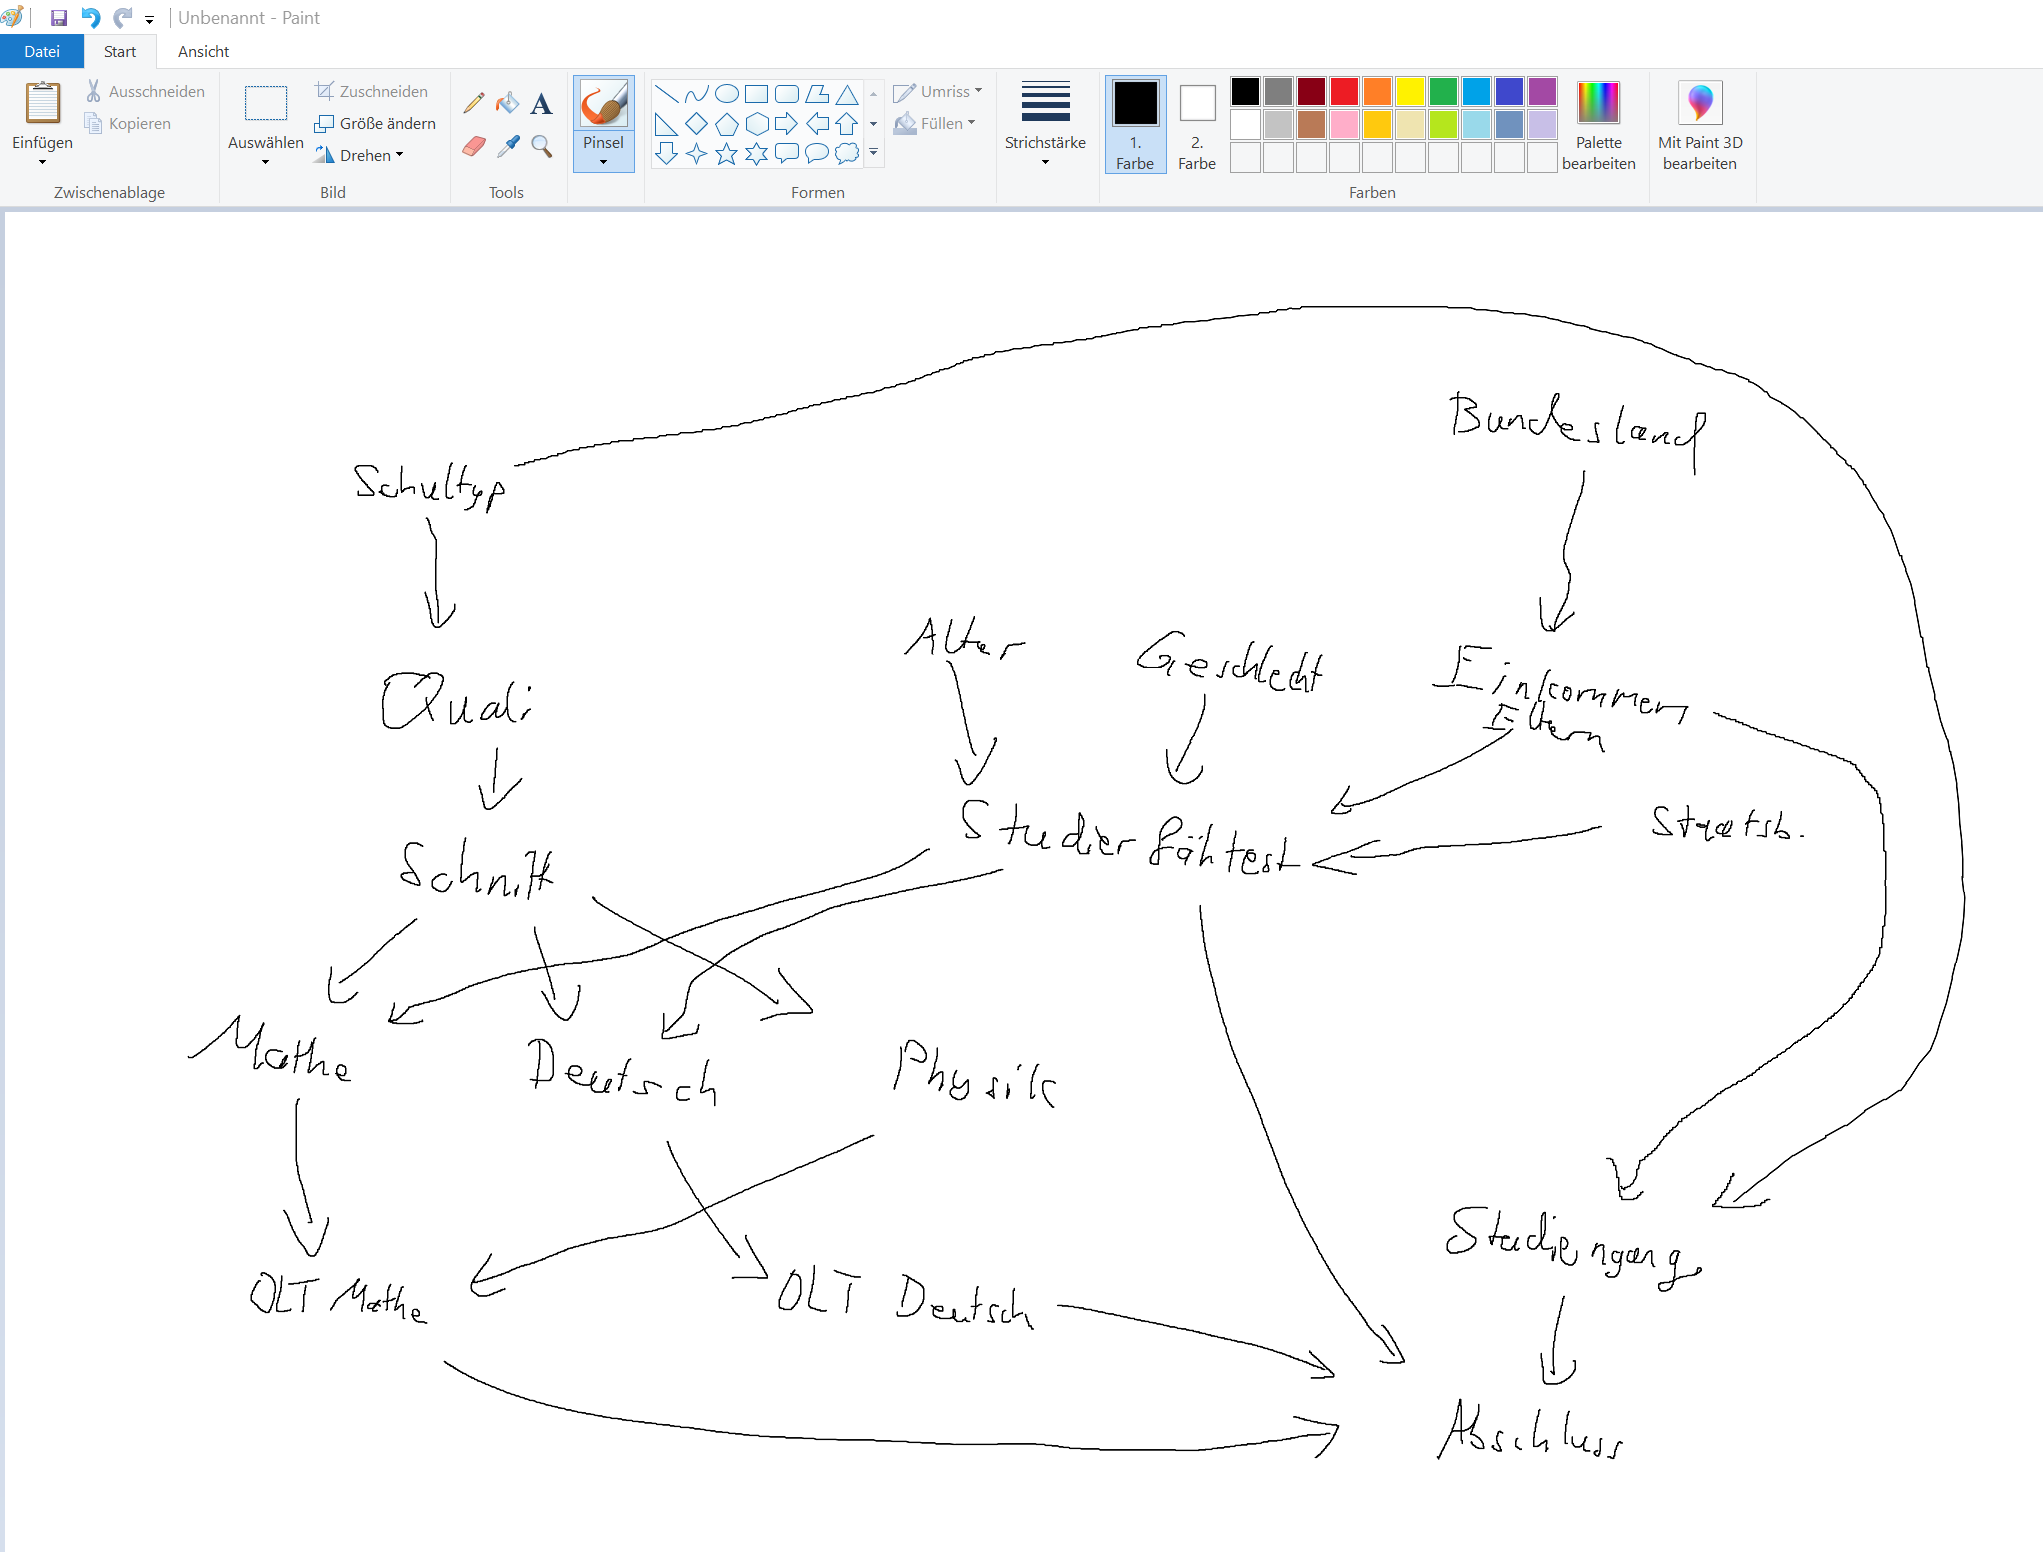 Unbenannt - Paint
Datei Start Ansicht
Einfügen
Ausschneiden
Kopieren
Zwischenablage
Auswählen
Zuschneiden
Größe ändern
Drehen
Bild
A
Tools
Pinsel
Umriss
Füllen
Formen
Strichstärke
1.
Farbe
2.
Farbe
Palette
bearbeiten
Farben
Mit Paint 3D
bearbeiten
Bundesland
Schultyp
Alter
Geschlecht
Einkommen
Eltern
Quali
Studierfähtest
Staatsb.
Schnitt
Mathe
Deutsch
Physik
Studiengang
OLT Mathe
OLT Deutsch
Abschluss